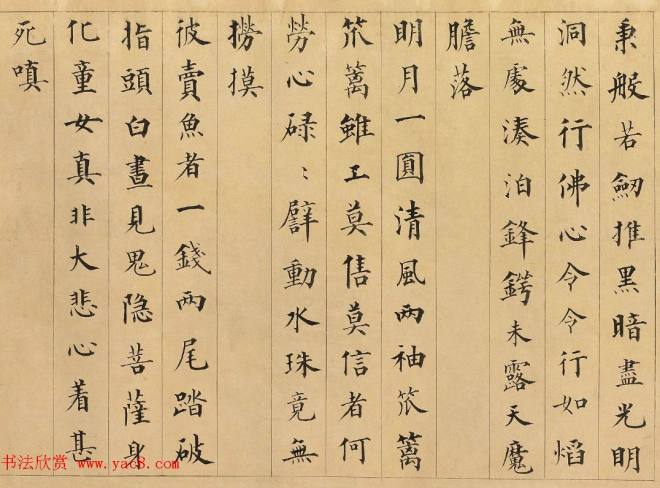 秉般若劒摧黑暗盡光明
洞然行佛心令令行如焰
無處湊泊鋒鍔未露天魔
膽落
明月一圓清風兩袖笊篱
笊篱雖工莫售莫信者何
勞心碌〻劈動水珠竟無
撈摸
彼賣魚者一錢兩尾踏破
指頭白晝見鬼隐菩薩身
化童女真非大悲心着甚
死嗔
书法欣赏 www.yac8.com